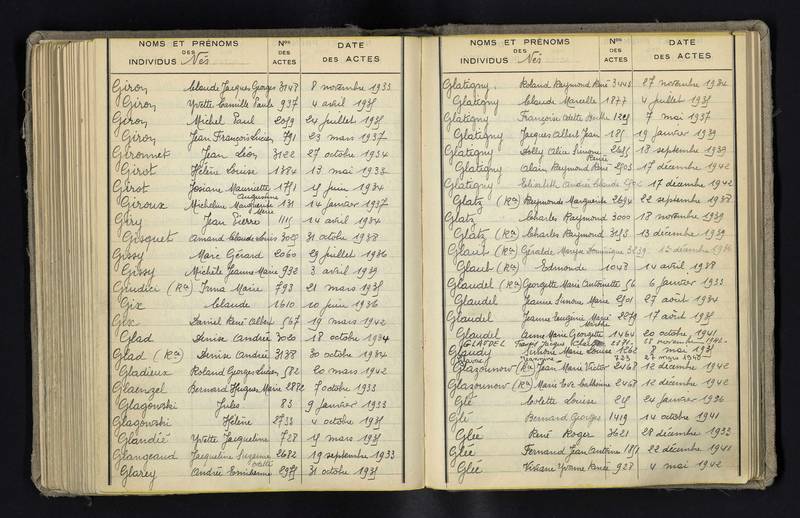 NOMS ET PRÉNOMS
DES
INDIVIDUS Nés
Nos
DES
ACTES
DATE
DES ACTES
Giron Claude Jacques Georges 3148 8 novembre 1933
Giron Yvette Camille Paule 937 4 avril 1935
Giron Michel Paul 2019 24 juillet 1935
Giron Jean François Lucien 791 23 mars 1937
Gironnet Jean Léon 3122 27 octobre 1934
Girot Hélène Louise 1384 13 mai 1933
Girot Josiane Mauricette 1751 15 juin 1934
Giroux Micheline Marguerite 131 14 janvier 1937
Augustine
Giry Jean Pierre 1115 14 avril 1934
Marie
Gisquet Amand Claude Louis 31 octobre 1938
Gissy Marc Gérard 2060 29 juillet 1936
Gissy Michèle Jeanne Marie 932 3 avril 1939
Giudici (Ra) Irma Marie 793 21 mars 1935
Gix Claude 1610 10 juin 1936
Gix Daniel René Albert 567 19 mars 1942
Glad Denise Andrée 3020 18 octobre 1934
Glad (Ra) Denise Andrée 3138 30 octobre 1934
Gladieux Roland Georges Lucien 582 20 mars 1942
Glaenzel Bernard Hugues Marie 2882 7 octobre 1933
Glagowski Jules 83 9 janvier 1933
Glagowski Hélène 2733 4 octobre 1935
Glandié Yvette Jacqueline 728 15 mars 1935
Glangeaud Jacqueline Suzanne 2682 19 septembre 1933
Odette
Glarey Andrée Emilienne 2975 31 octobre 1935
NOMS ET PRÉNOMS
DES
INDIVIDUS Nés
Nos
DES
ACTES
DATE
DES ACTES
Glatigny Roland Raymond René 3443 27 novembre 1934
Glatigny Claude Marcelle 1877 4 juillet 1935
Glatigny Françoise Odette 7 mai 1937
Glatigny Jacques Albert Jean 185 19 janvier 1939
Glatigny Dolly Alice Simone 2635 18 septembre 1939
Renée
Glatigny Alain Raymond René 2503 17 décembre 1942
Glatigny Elisabeth Andrée Claude 17 décembre 1942
Glatz (Ra) Raymonde Marguerite 2694 22 septembre 1938
Glatz Charles Raymond 3000 18 novembre 1939
Glatz (Ra) Charles Raymond 3153 13 décembre 1939
Glaut (Ra) Géralde Maryse Dominique 3239 13 décembre 1936
Glaut (Ra) Edmonde 1048 14 avril 1938
Glaudel (Ra) Georgette Marie Antoinette 56 6 janvier 1933
Glaudel Jeanne Simone Marie 2501 27 août 1934
Glaudel Jeanne Eugénie Marie 2279 17 août 1935
Marthe
Glaudel Anne Marie Georgette 1464 20 octobre 1941
GLAUDEL Jacques Charles 2871 28 novembre
Glaudy Marie Louise 1262 8 mai 1931
Glazounow (Ra) Jean Marie Victor 2468 12 décembre 1942
Glazounow (Ra) Marie Eve Catherine 2468 12 décembre 1942
Glé Colette Louise 215 24 janvier 1936
Glé Bernard Georges 1419 14 octobre 1941
Glée René Roger 3621 28 décembre 1933
Glée Fernand Jean Antoine 1851 22 décembre 1941
Glée Viviane Yvonne Renée 928 4 mai 1942